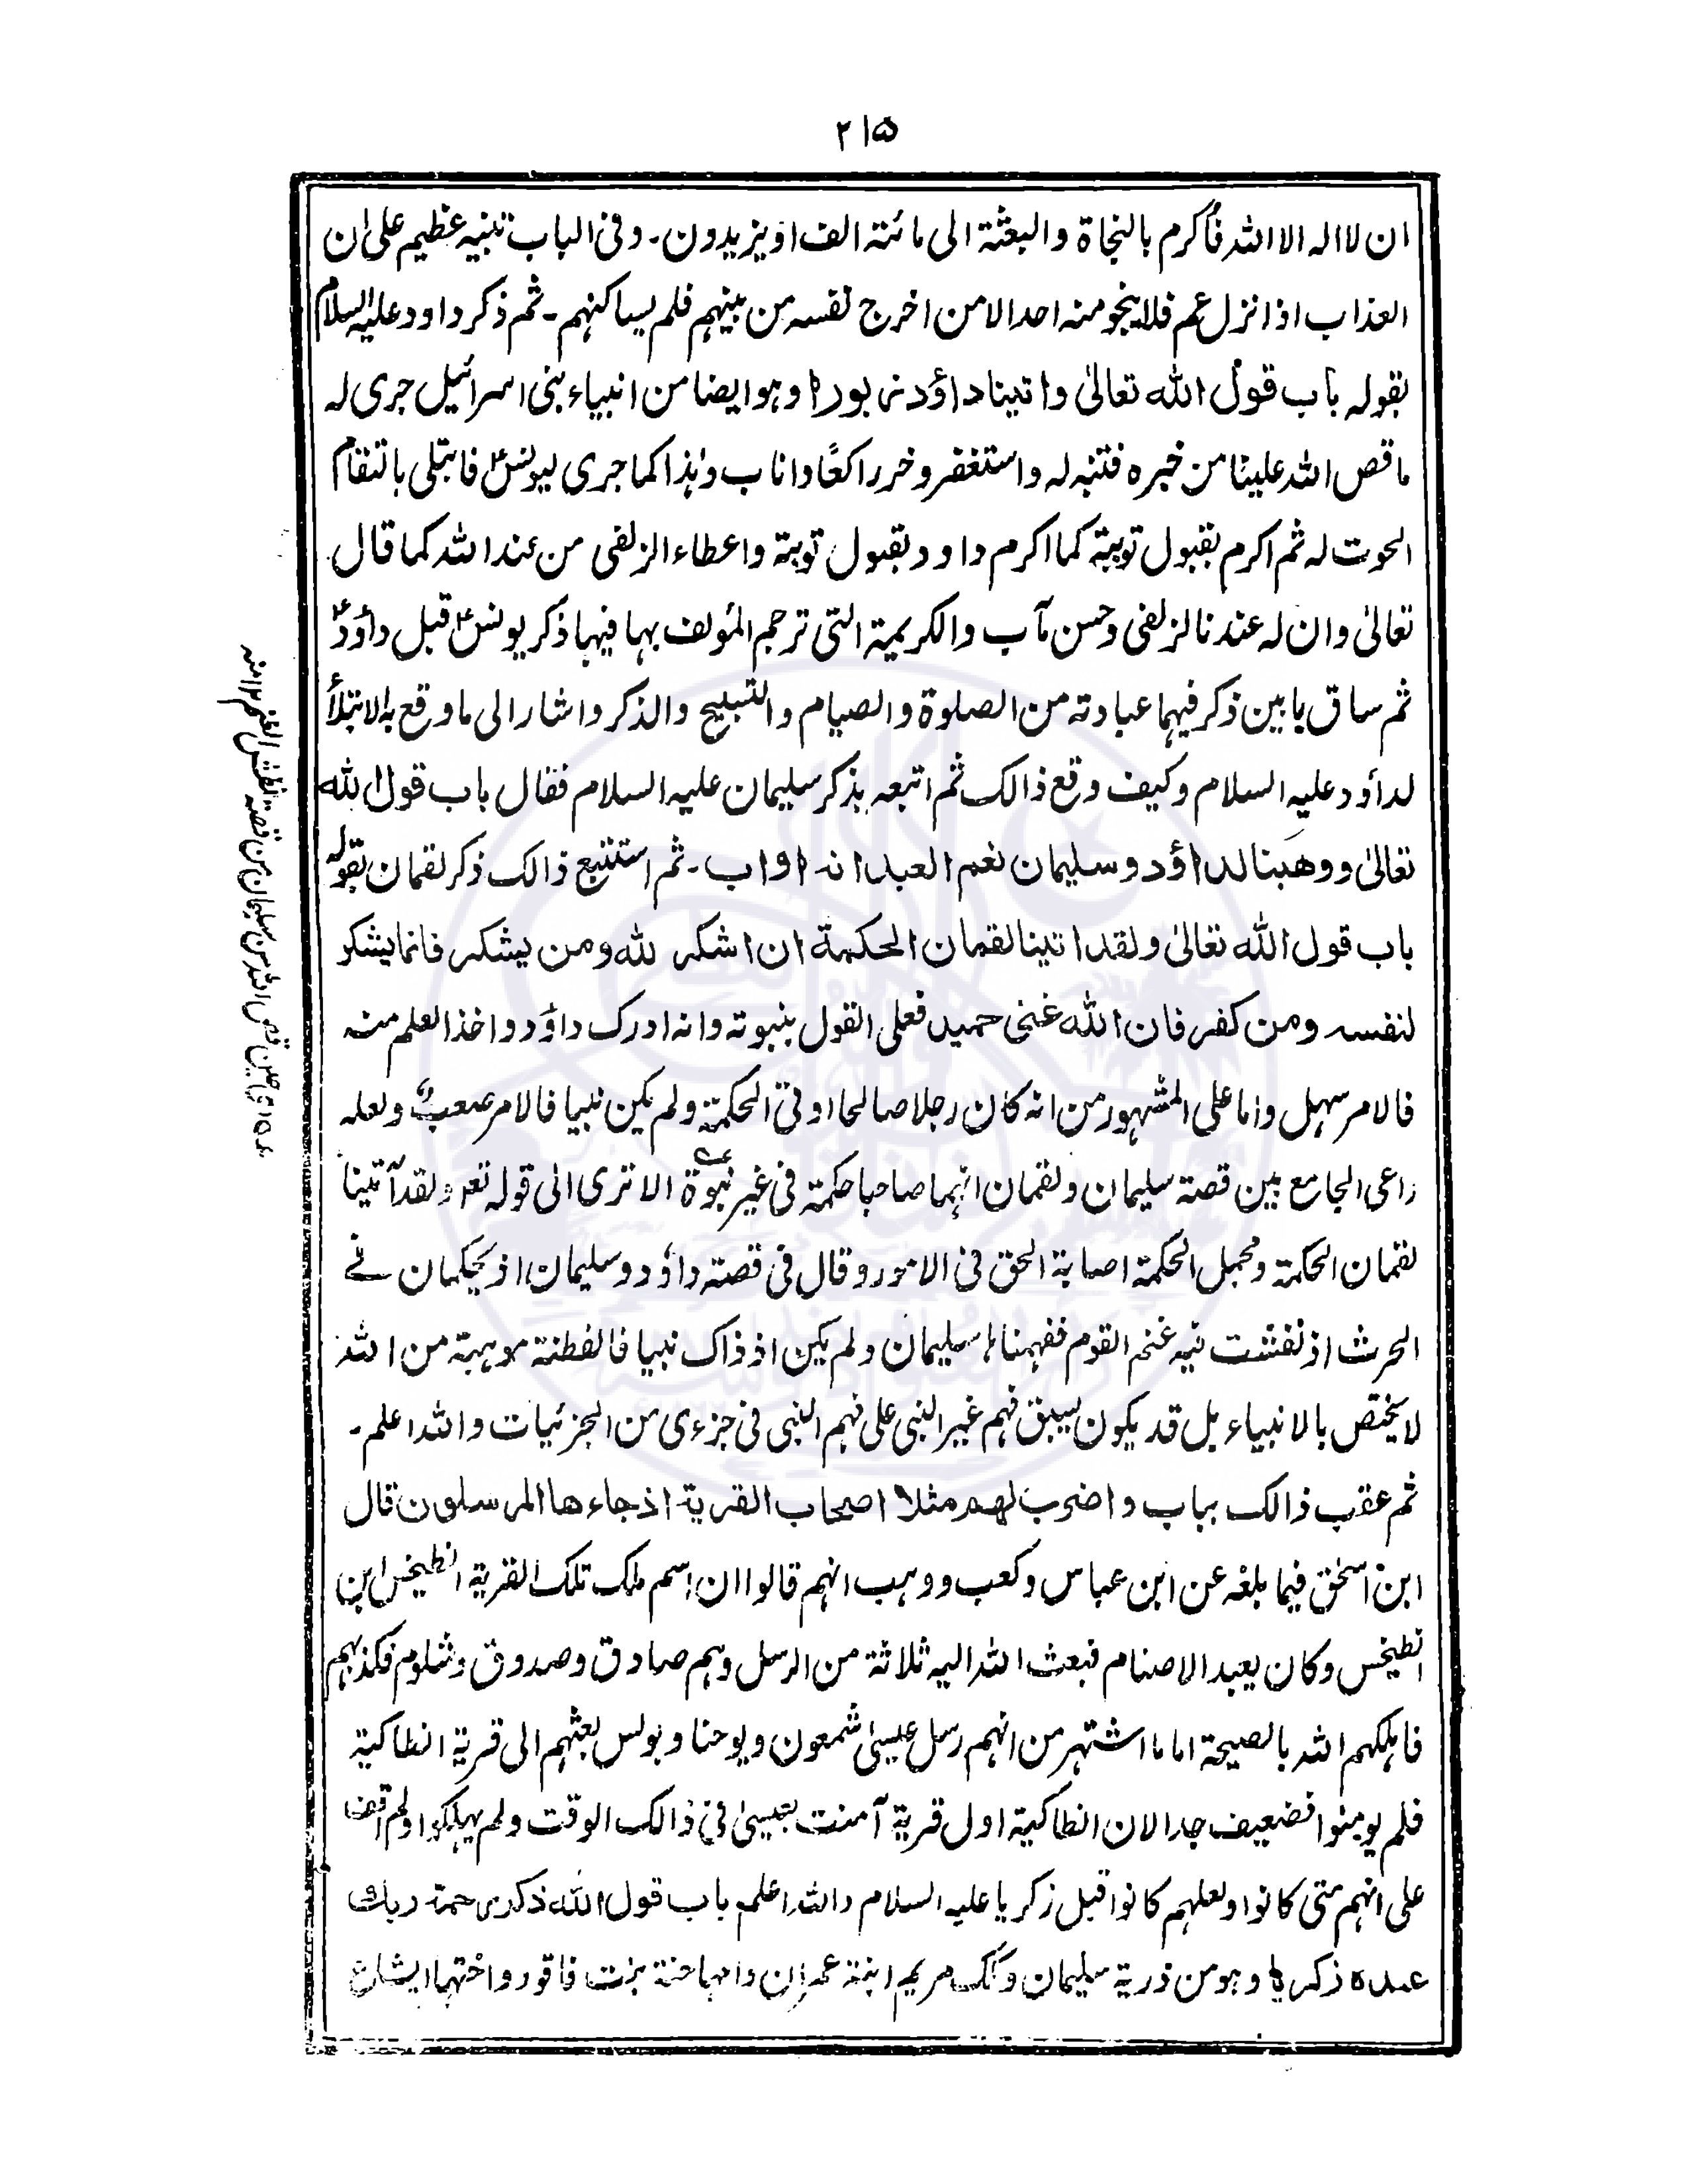 ۲۱۵
ان لا اله الا الله فأكرم بالنجاة والبعثة الى مائتة الف او يزيدون۔ وفى الباب تنبيه عظيم على ان
العذاب اذا نزل عم فلا ينجو منه احد الا من اخرج نفسه من بينهم فلم يساكنهم۔ ثم ذكر داود عليه السلام
بقوله باب قول الله تعالىٰ واتينا داؤد زبورا وهو ايضا من انبياء بنى اسرائيل جرى له
ما قص الله علينا من خبره فتنبه له واستغفر وخر راكعًا واناب وهذا كما جرى ليونسؑ فابتلى بالتقام
الحوت له ثم اكرم بقبول توبته كما اكرم داود بقبول توبته واعطاء الزلفى من عند الله كما قال
تعالىٰ وان له عندنا لزلفى وحسن مآب والكريمة التى ترجم المؤلف بها فيها ذكر يونسؑ قبل داؤدؑ
ثم ساق بابين ذكر فيهما عبادته من الصلوة والصيام والتسبيح والذكر واشار الى ما وقع به الابتلأ
لداؤد عليه السلام وكيف وقع ذالك ثم اتبعه بذكر سليمان عليه السلام فقال باب قول الله
تعالىٰ ووهبنا لداؤد وسليمان نعم العبد انه اواب۔ ثم استتبع ذالك ذكر لقمان بقوله
باب قول الله تعالىٰ ولقد اتينا لقمان الحكمة ان اشكر لله ومن يشكر فانما يشكر
لنفسه ومن كفر فان الله غنى حميد فعلى القول بنبوته وانه ادرك داؤد واخذ العلم منه
فالامر سهل واما على المشهور من انه كان رجلا صالحا اوتى الحكمة ولم يكن نبيا فالامر صعب ولعله
راعى الجامع بين قصة سليمان ولقمان انهما صاحبا حكمة فى غير نبوة الا ترى الى قوله تعر ولقد آتينا
لقمان الحكمة ومحمل الحكمة اصابة الحق فى الامور وقال فى قصة داؤد وسليمان اذ يحكمان فے
الحرث اذ نفشت فيه غنم القوم ففهمناها سليمان ولم يكن اذ ذاك نبيا فالفطنة موهبة من الله
لا يختص بالانبياء بل قد يكون يسبق فهم غير النبى على فهم النبى فى جزءى من الجزئيات والله اعلم۔
ثم عقب ذالك بباب واضرب لهم مثلا اصحاب القرية اذ جاءها المرسلون قال
ابن اسحٰق فيما بلغه عن ابن عباس وكعب ووهب انهم قالوا ان اسم ملك تلك القرية انطيخس ابن
انطيخس وكان يعبد الاصنام فبعث الله اليه ثلاثة من الرسل وهم صادق وصدوق وشلوم فكذبهم
فاهلكهم الله بالصيحة اما ما اشتهر من انهم رسل عيسىٰ شمعون ويوحنا وبولس بعثهم الى قرية انطاكية
فلم يومنوا فضعيف جدا لان انطاكية اول قرية آمنت بعيسىٰ فى ذالك الوقت ولم يهلكوا ولم اقف
على انهم متى كانوا ولعلهم كانوا قبل زكريا عليه السلام والله اعلم باب قول الله ذكر رحمة ربك
عبده زكريا وهو من ذرية سليمان وكك مريم ابنة عمران وامها حنة بنت فاقور واختها ايشاع